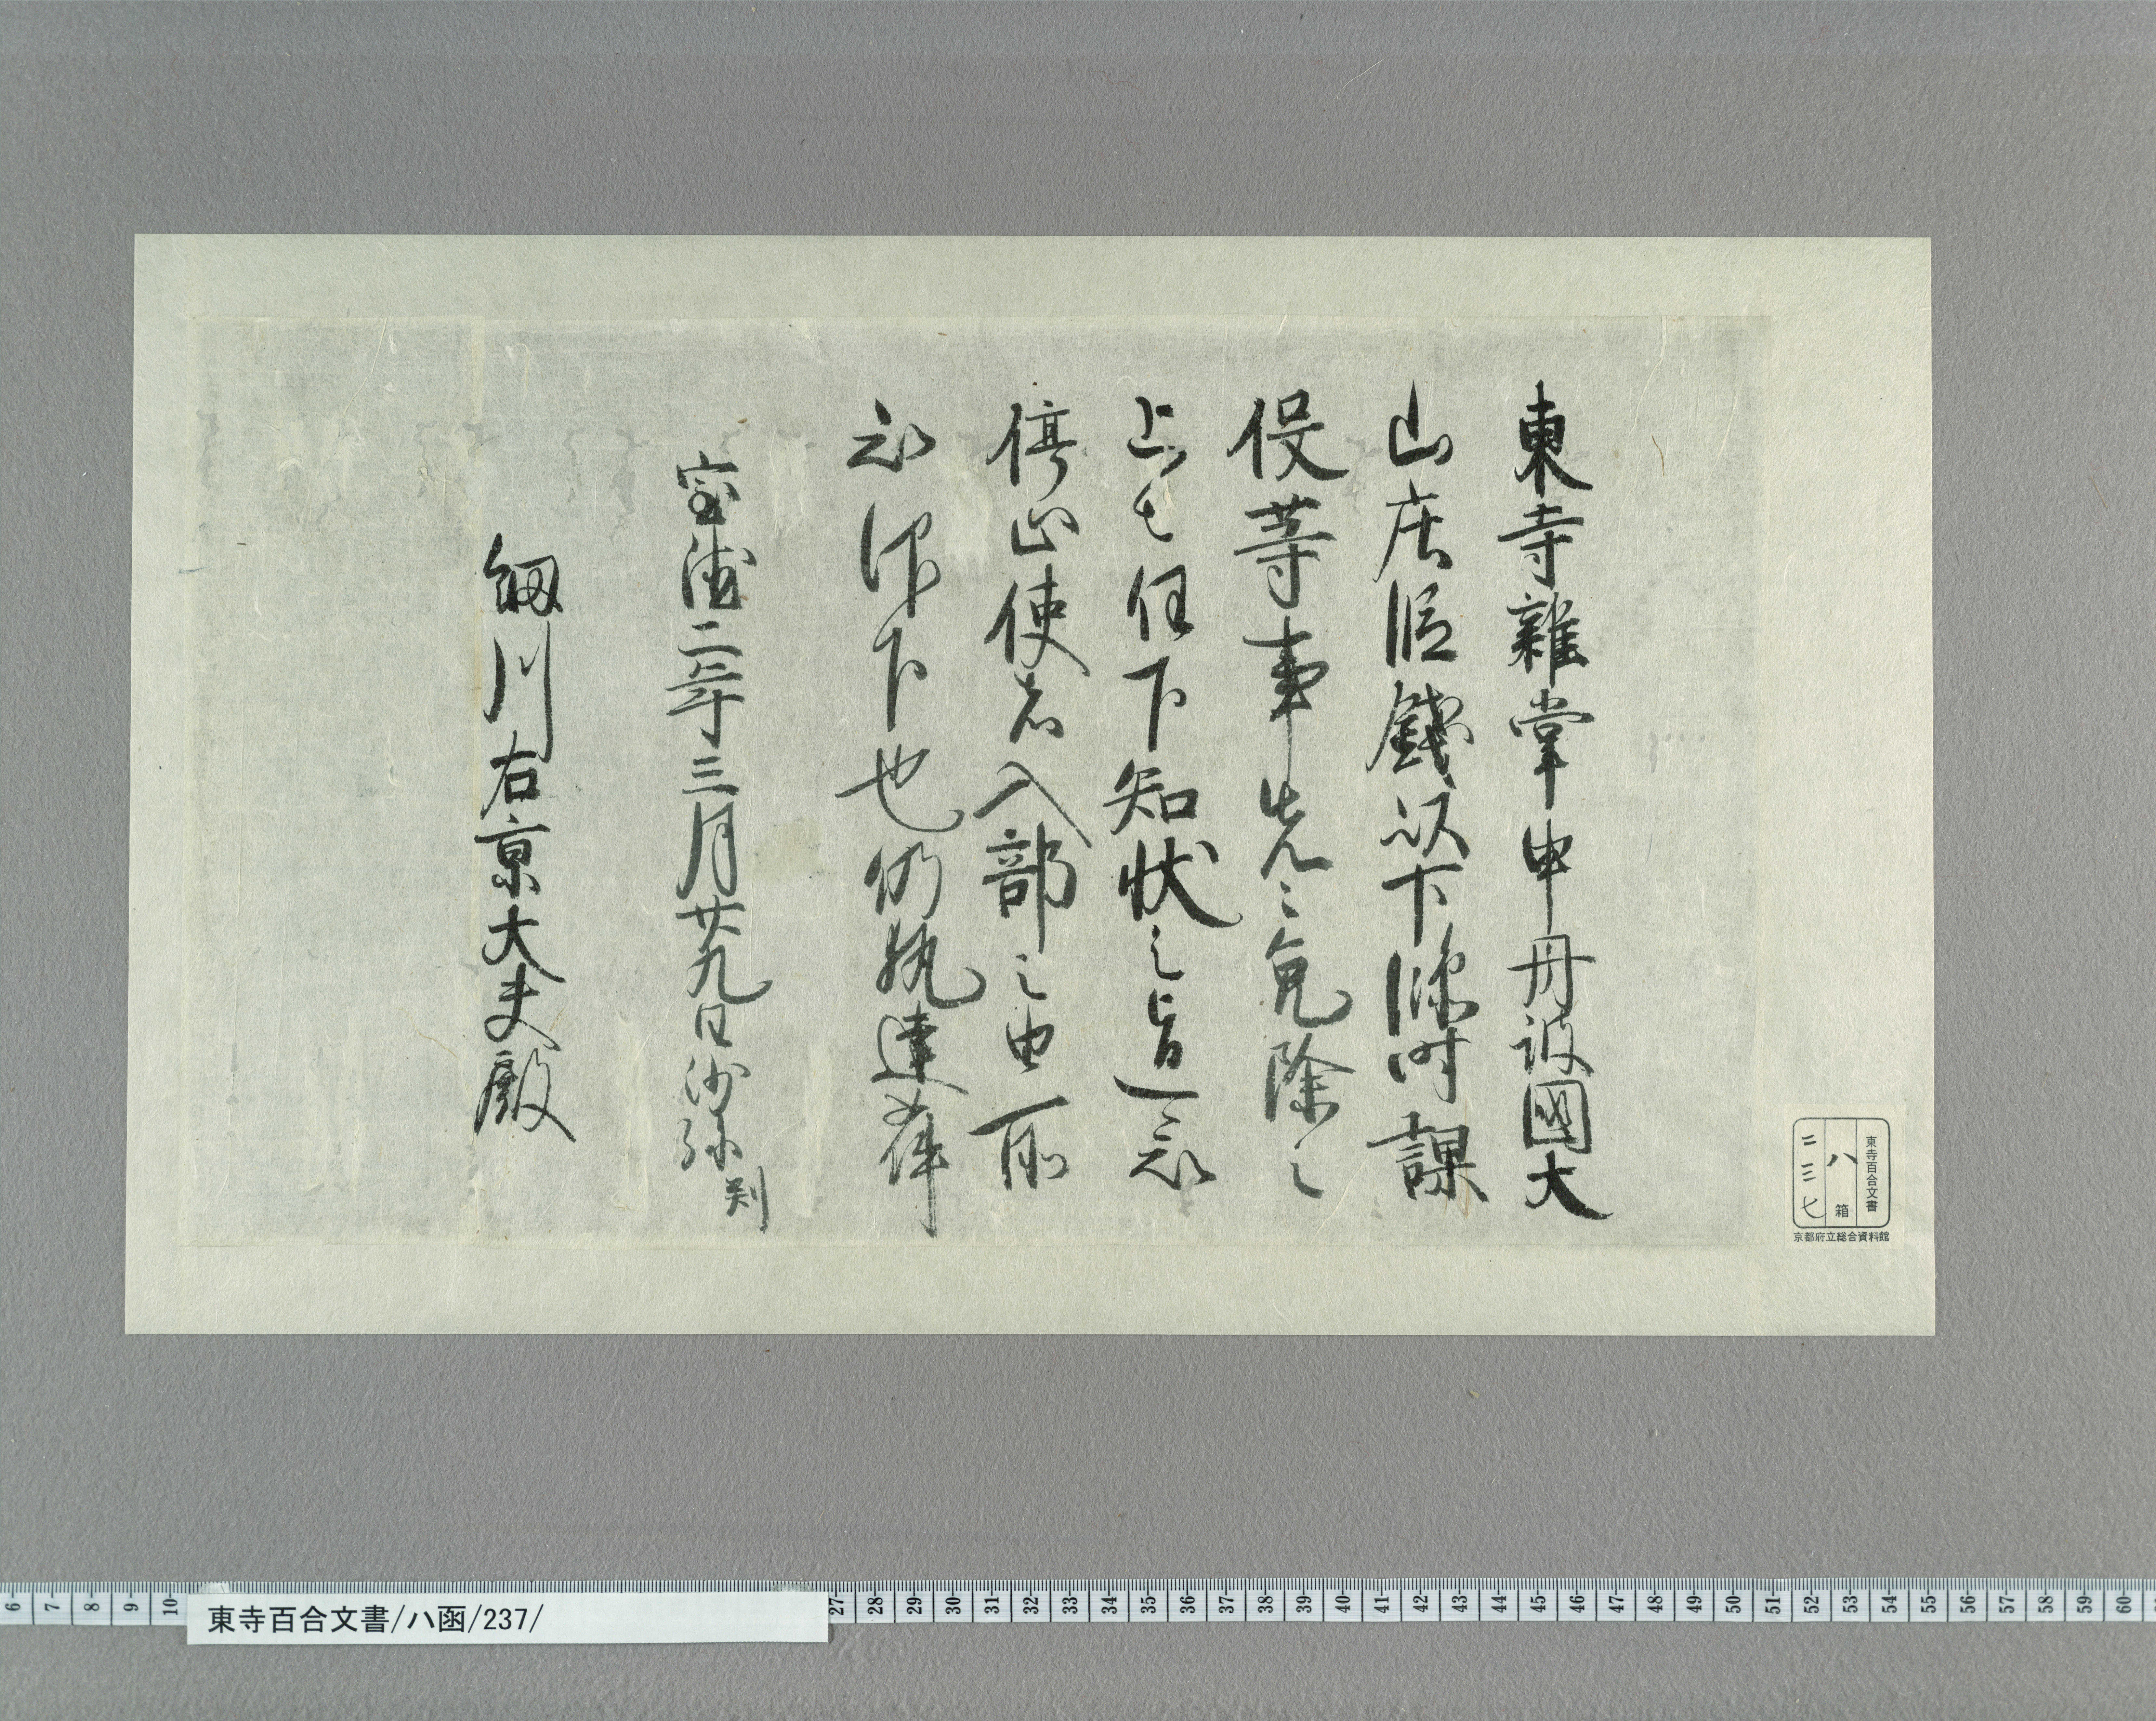 東寺雑掌申丹波國大
山庄段錢以下臨時課
役等事先々免除之
上者任下知状之旨可令
停止使者入部之由所
被仰下也仍執達如件
宝徳二年三月廿九日沙弥判
細川右京大夫殿
東寺百合文書
ハ箱
二三七
京都府立総合資料館
東寺百合文書/ハ函/237/
6 7 8 9 10 27 28 29 30 31 32 33 34 35 36 37 38 39 40 41 42 43 44 45 46 47 48 49 50 51 52 53 54 55 56 57 58 59 60